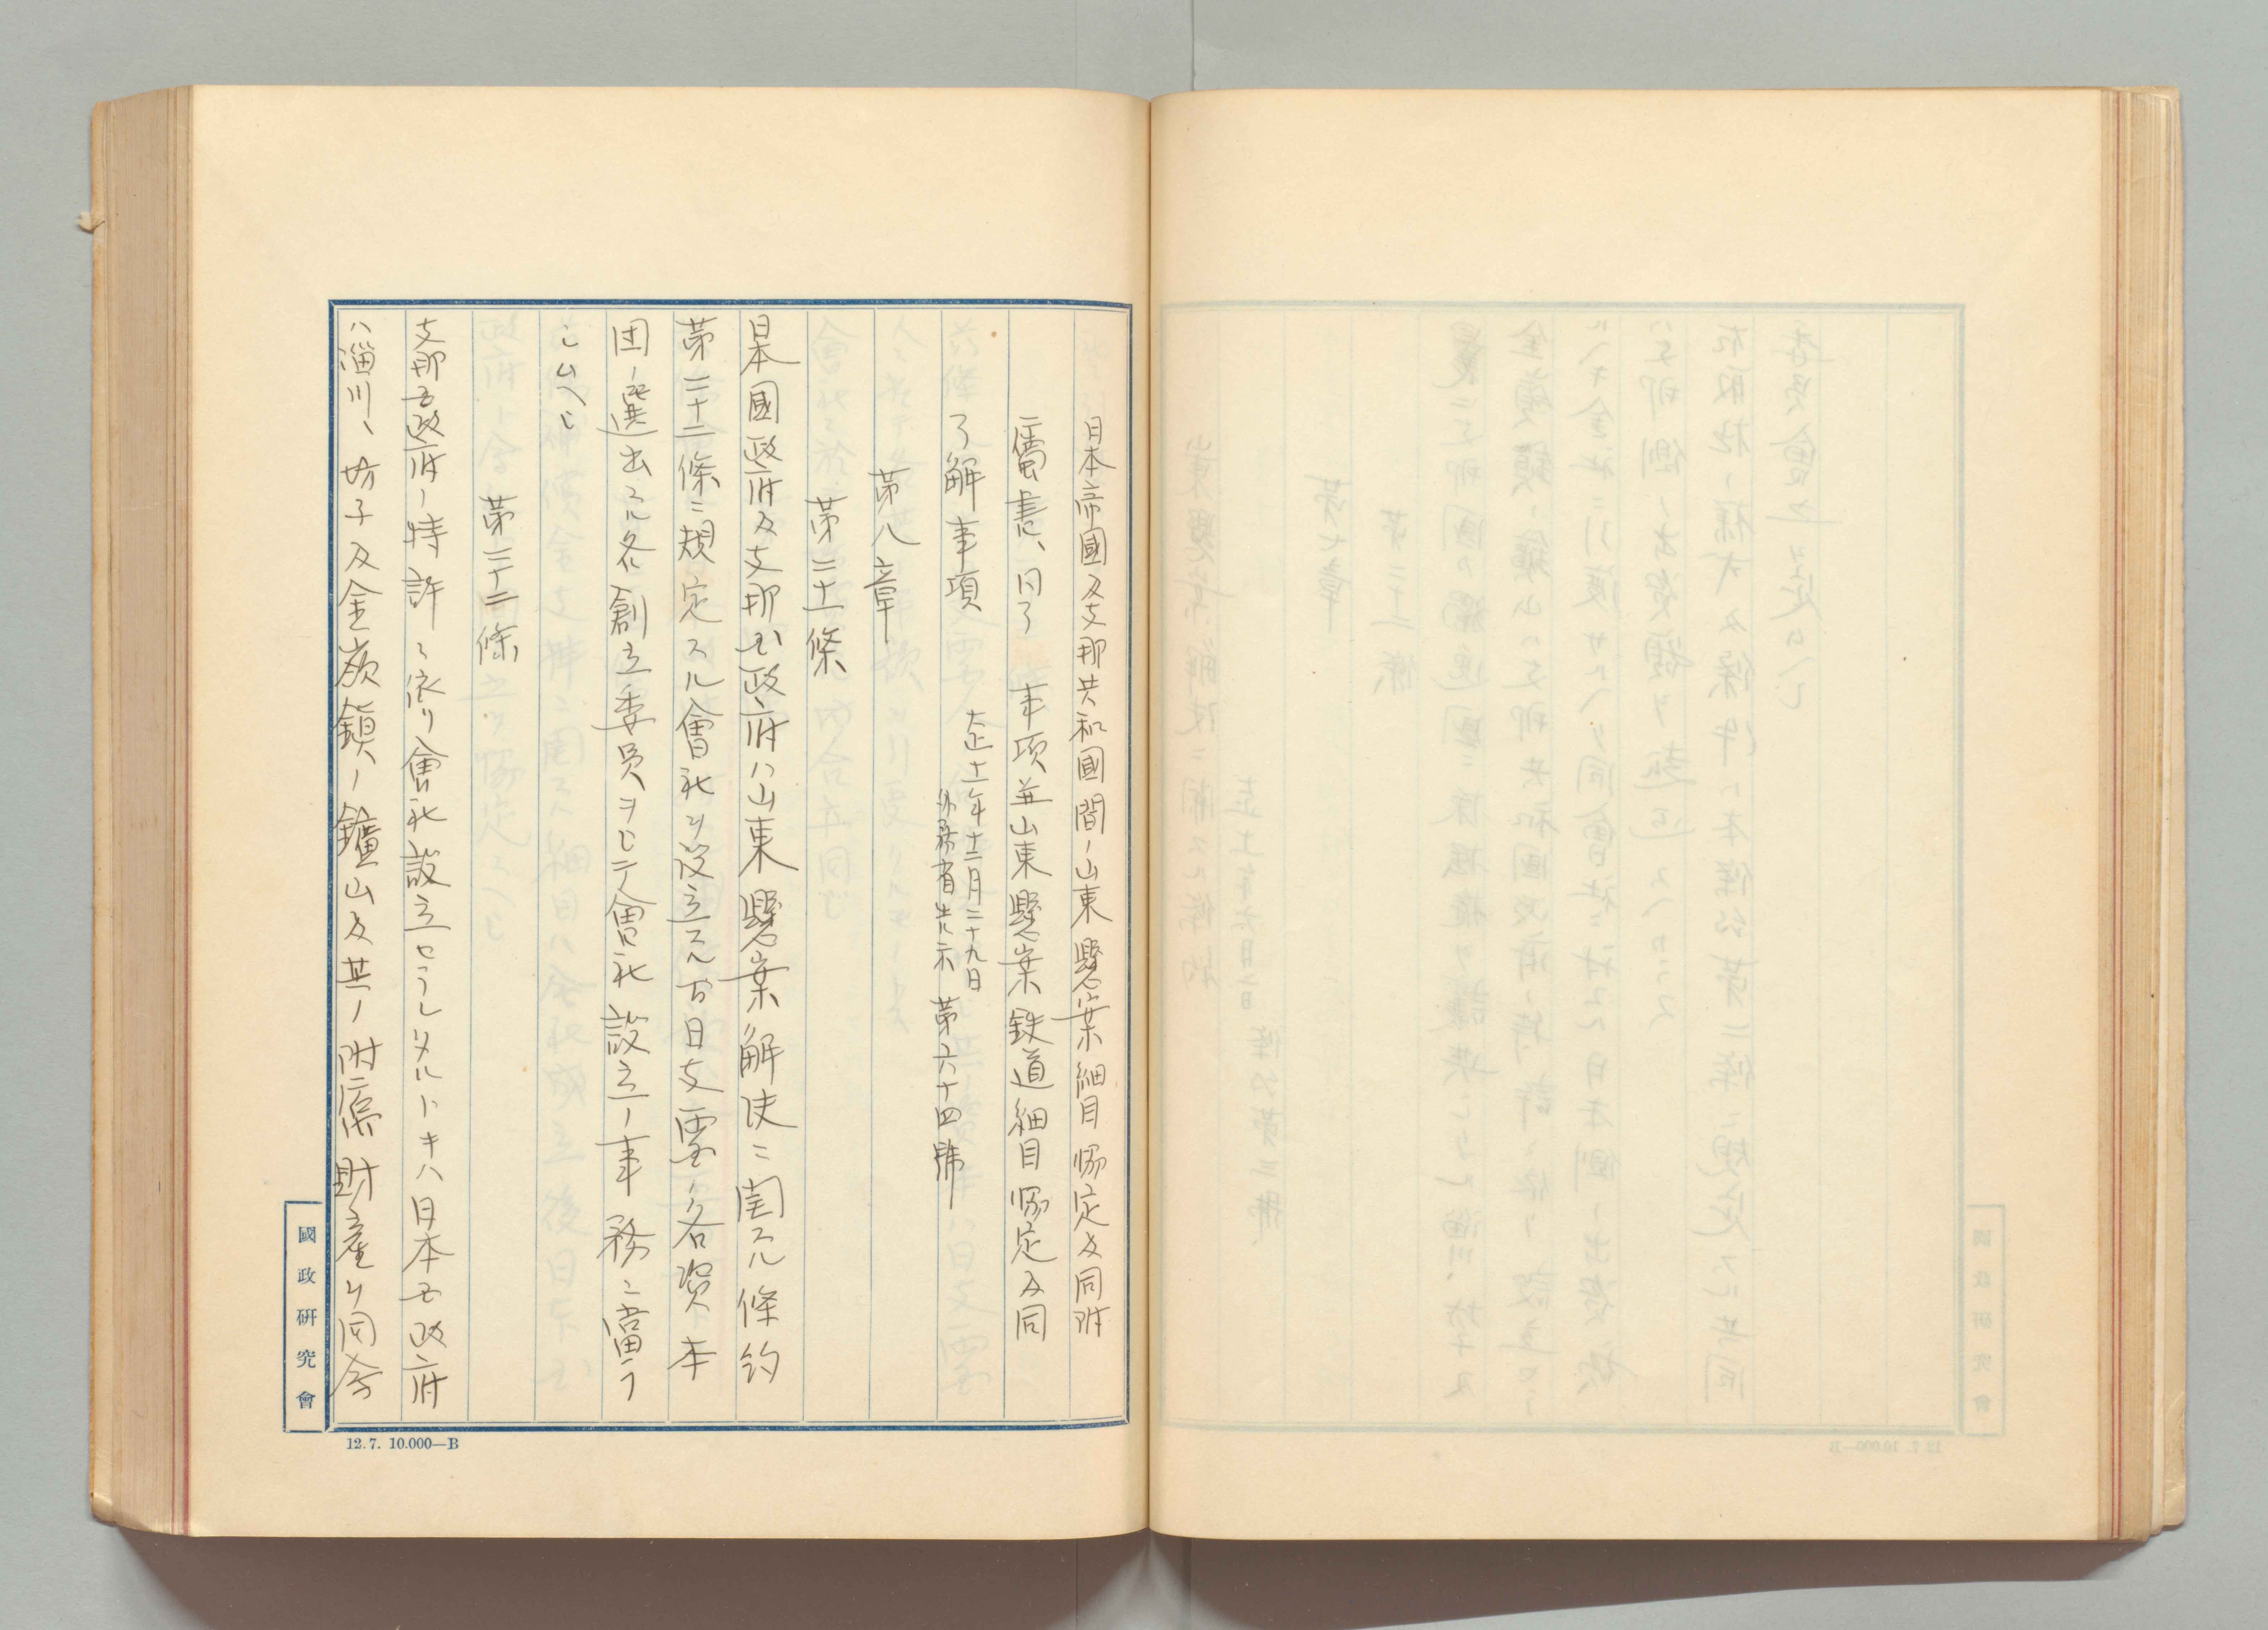 日本帝國及支那共和國間ノ山東懸案細目協定及同附
属書、同了 事項並山東懸案鉄道細目協定及同
了解事項
大正十一年十二月二十九日
外務省告示 第六十四號
第八章
第二十一條
日本國政府及支那國政府ハ山東懸案解決ニ関スル條約
第二十二條ニ規定スル會社ヲ設立スル為日支両國ノ各資本
団ノ選出スル各創立委員ヲシテ會社設立ノ事務ニ當ラ
シムヘシ
第二十二條
支那國政府ノ特許ニ依リ會社設立セラレタルトキハ日本國政府
ハ淄川、坊子及金嶺鎮ノ鑛山及其ノ附属財産ヲ同會
國政研究會
12.7. 10.000—B